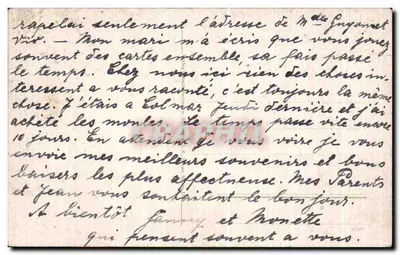 rapelai seulement l'adresse de Mdes Guyonnet
Vix. — Mon mari m'a écris que vous jouez
souvent des cartes ensemble, sa fais passé
le temps. Chez nous ici rien des choses in-
teressent a vous raconté, c'est toujours la même
chose. J'étais a Colmar Jeudi dernière et j'ai
acheté les moules. Le temps passe vite encore
10 jours. En atendent je vous voire je vous
envoie mes meilleurs souvenirs et bons
baisers les plus affectueuse. Mes Parents
et Jean vous souhaitent le bonjour.
A bientôt Fanny et Monette
qui pensent souvent a vous.